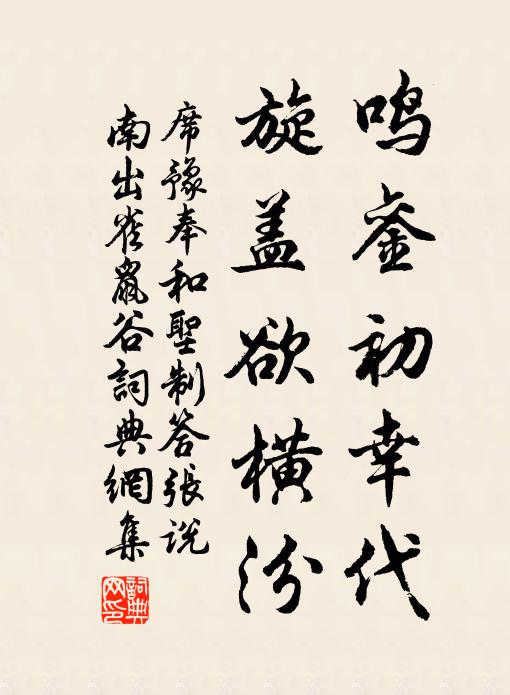 鸣銮初幸代
旋盖欲横汾
席豫奉和聖制答張说
南出雀鼠谷詞典網集
詞典网印